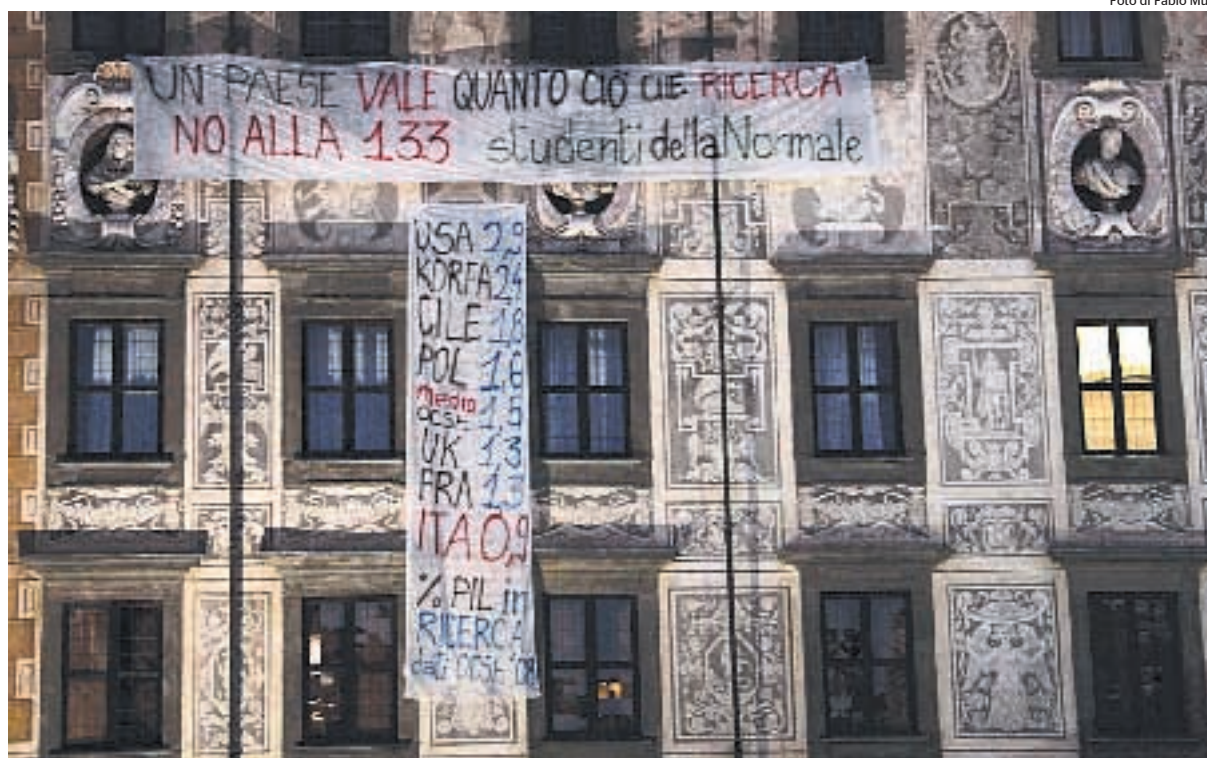 Foto di Fabio Mu
UN PAESE VALE QUANTO CIÒ CHE RICERCA
NO ALLA 133 studenti della Normale
USA 2,9
KOREA 2,4
CILE 1,8
POL 1,6
media
OCSE 1,5
UK 1,3
FRA 1,3
ITA 0,9
% PIL in
RICERCA
dati OCSE '08